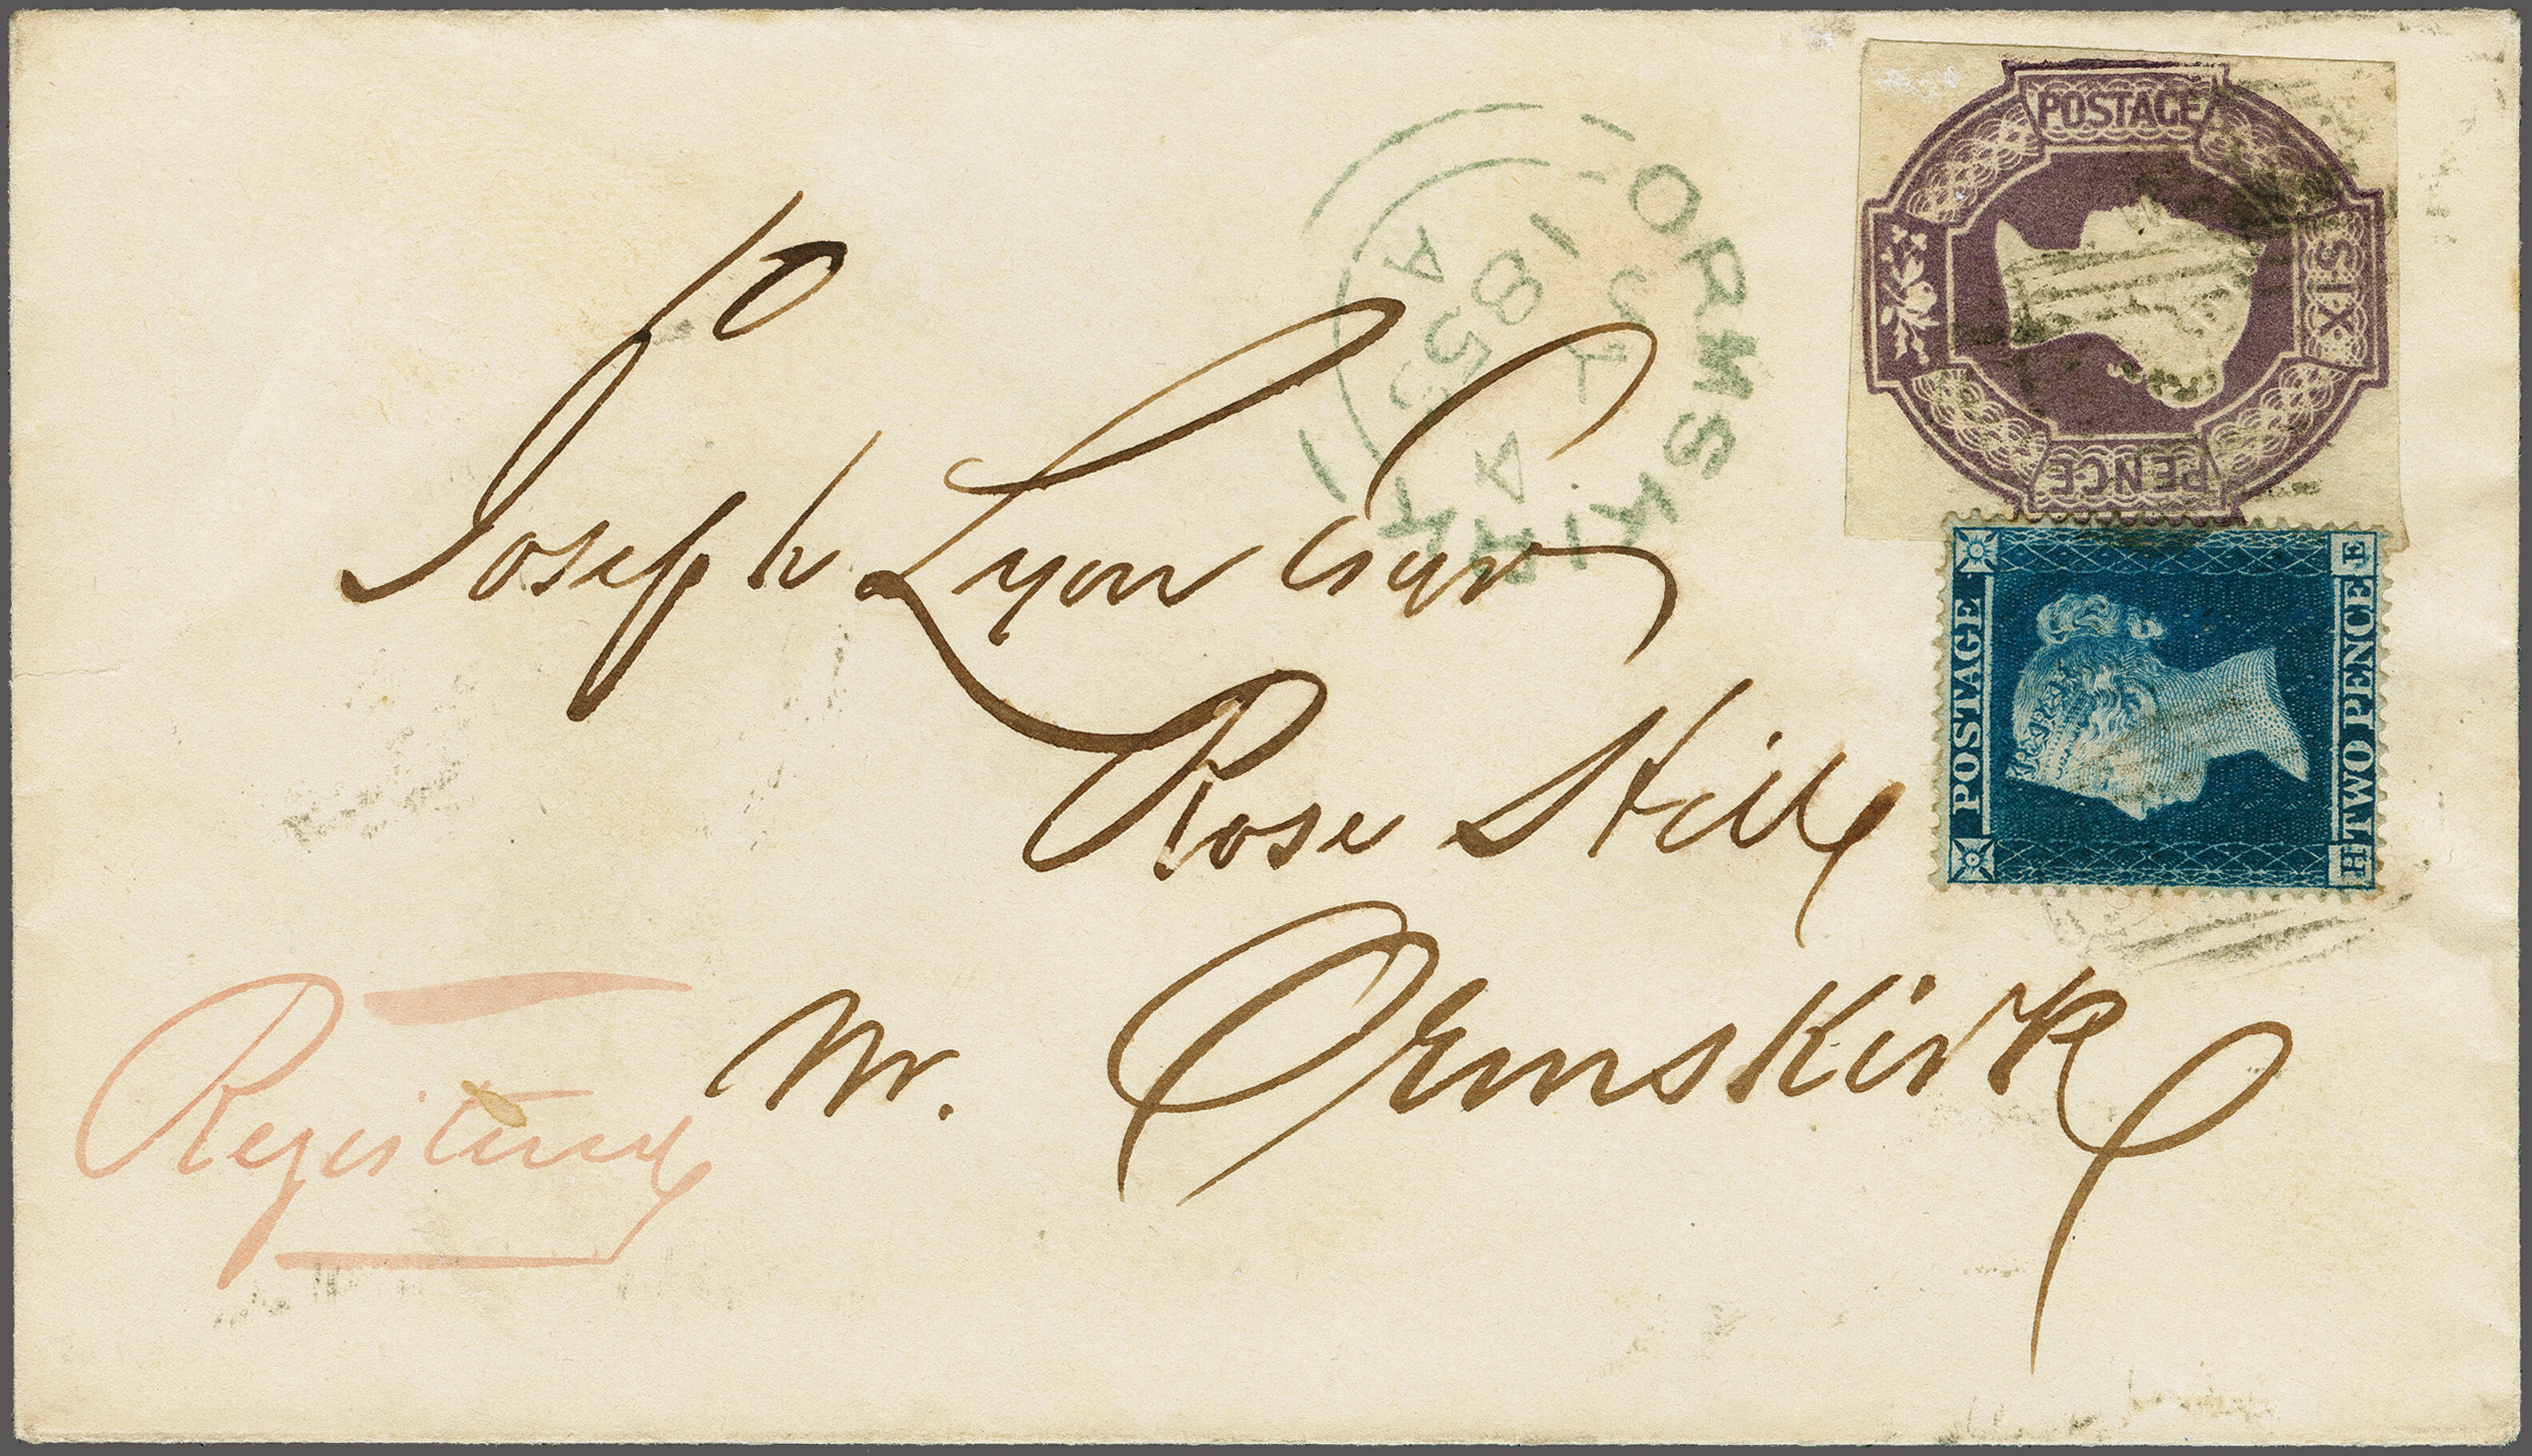 Joseph Lyon Esqr
Rose Hill
nr. Ormskirk
Registered
ORMSKIRK
A
JY 4
1855
A
POSTAGE
SIX
PENCE
POSTAGE
TWO PENCE
H E